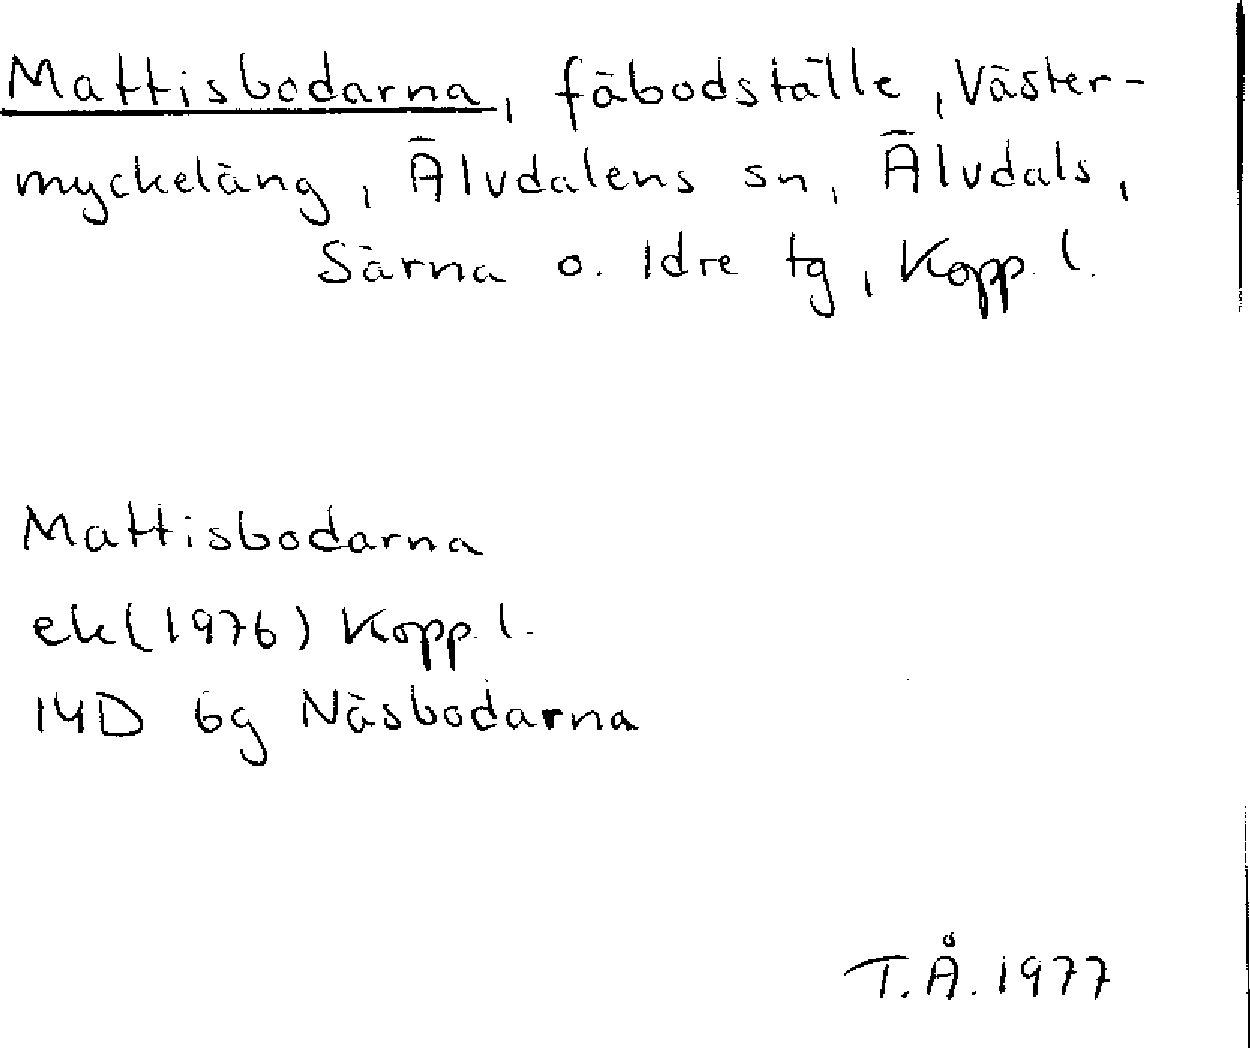 Mattisbodarna, fäbodställe, Väster-
myckeläng, Älvdalens sn, Älvdals,
Särna o. Idre tg, Kopp. l.
Mattisbodarna
ek (1976) Kopp. l.
14D 6g Näsbodarna
T.Å. 1977